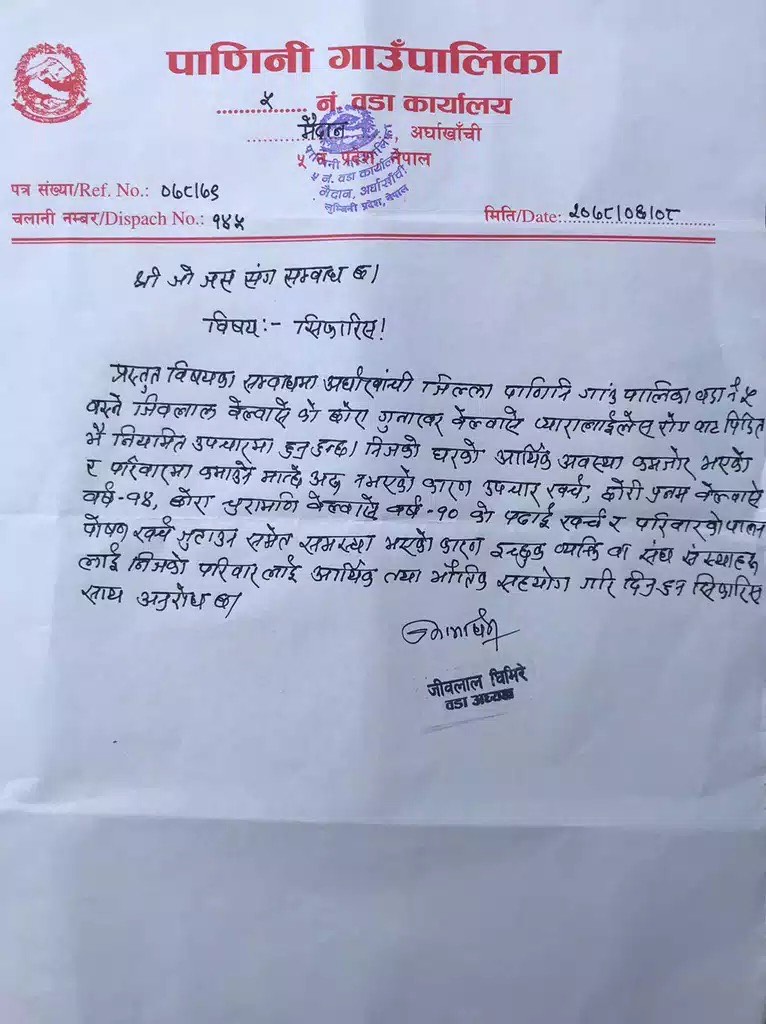 पाणिनी गाउँपालिका
५ नं. वडा कार्यालय
मैदान, अर्घाखाँची
५ नं. प्रदेश, नेपाल
पत्र संख्या/Ref. No.: ०७८/७९
चलानी नम्बर/Dispach No.: १४५
मिति/Date: २०७८/०७/०८
श्री जो जस संग सम्बन्ध छ।
विषय:- सिफारिस!
प्रस्तुत विषयका सम्वन्धमा अर्घाखांची जिल्ला पाणिनि गांउ पालिका वडा नं ५
वस्ने जिवलाल वेल्वासे को छोरा गुनाखर वेल्वासे प्यारालाईसेस रोग वाट पिडित
भै नियमित उपचारमा हुनुहुन्छ। निजको घरको आर्थिक अवस्था कमजोर भएको
र परिवारमा कमाउने मान्छे अरु नभएको कारण उपचार खर्च, छोरी पुनम वेल्वासे
वर्ष-१४, छोरा चुरामणि वेल्वासे वर्ष-१० को पढाई खर्च र परिवारको पालन
पोषण खर्च जुटाउन समेत समस्या भएको कारण इच्छुक व्यक्ति वा संघ संस्थाहरु
लाई निजको परिवार लाई आर्थिक तथा भौतिक सहयोग गरि दिनुहुन सिफारिस
साथ अनुरोध छ।
जीवलाल घिमिरे
वडा अध्यक्ष